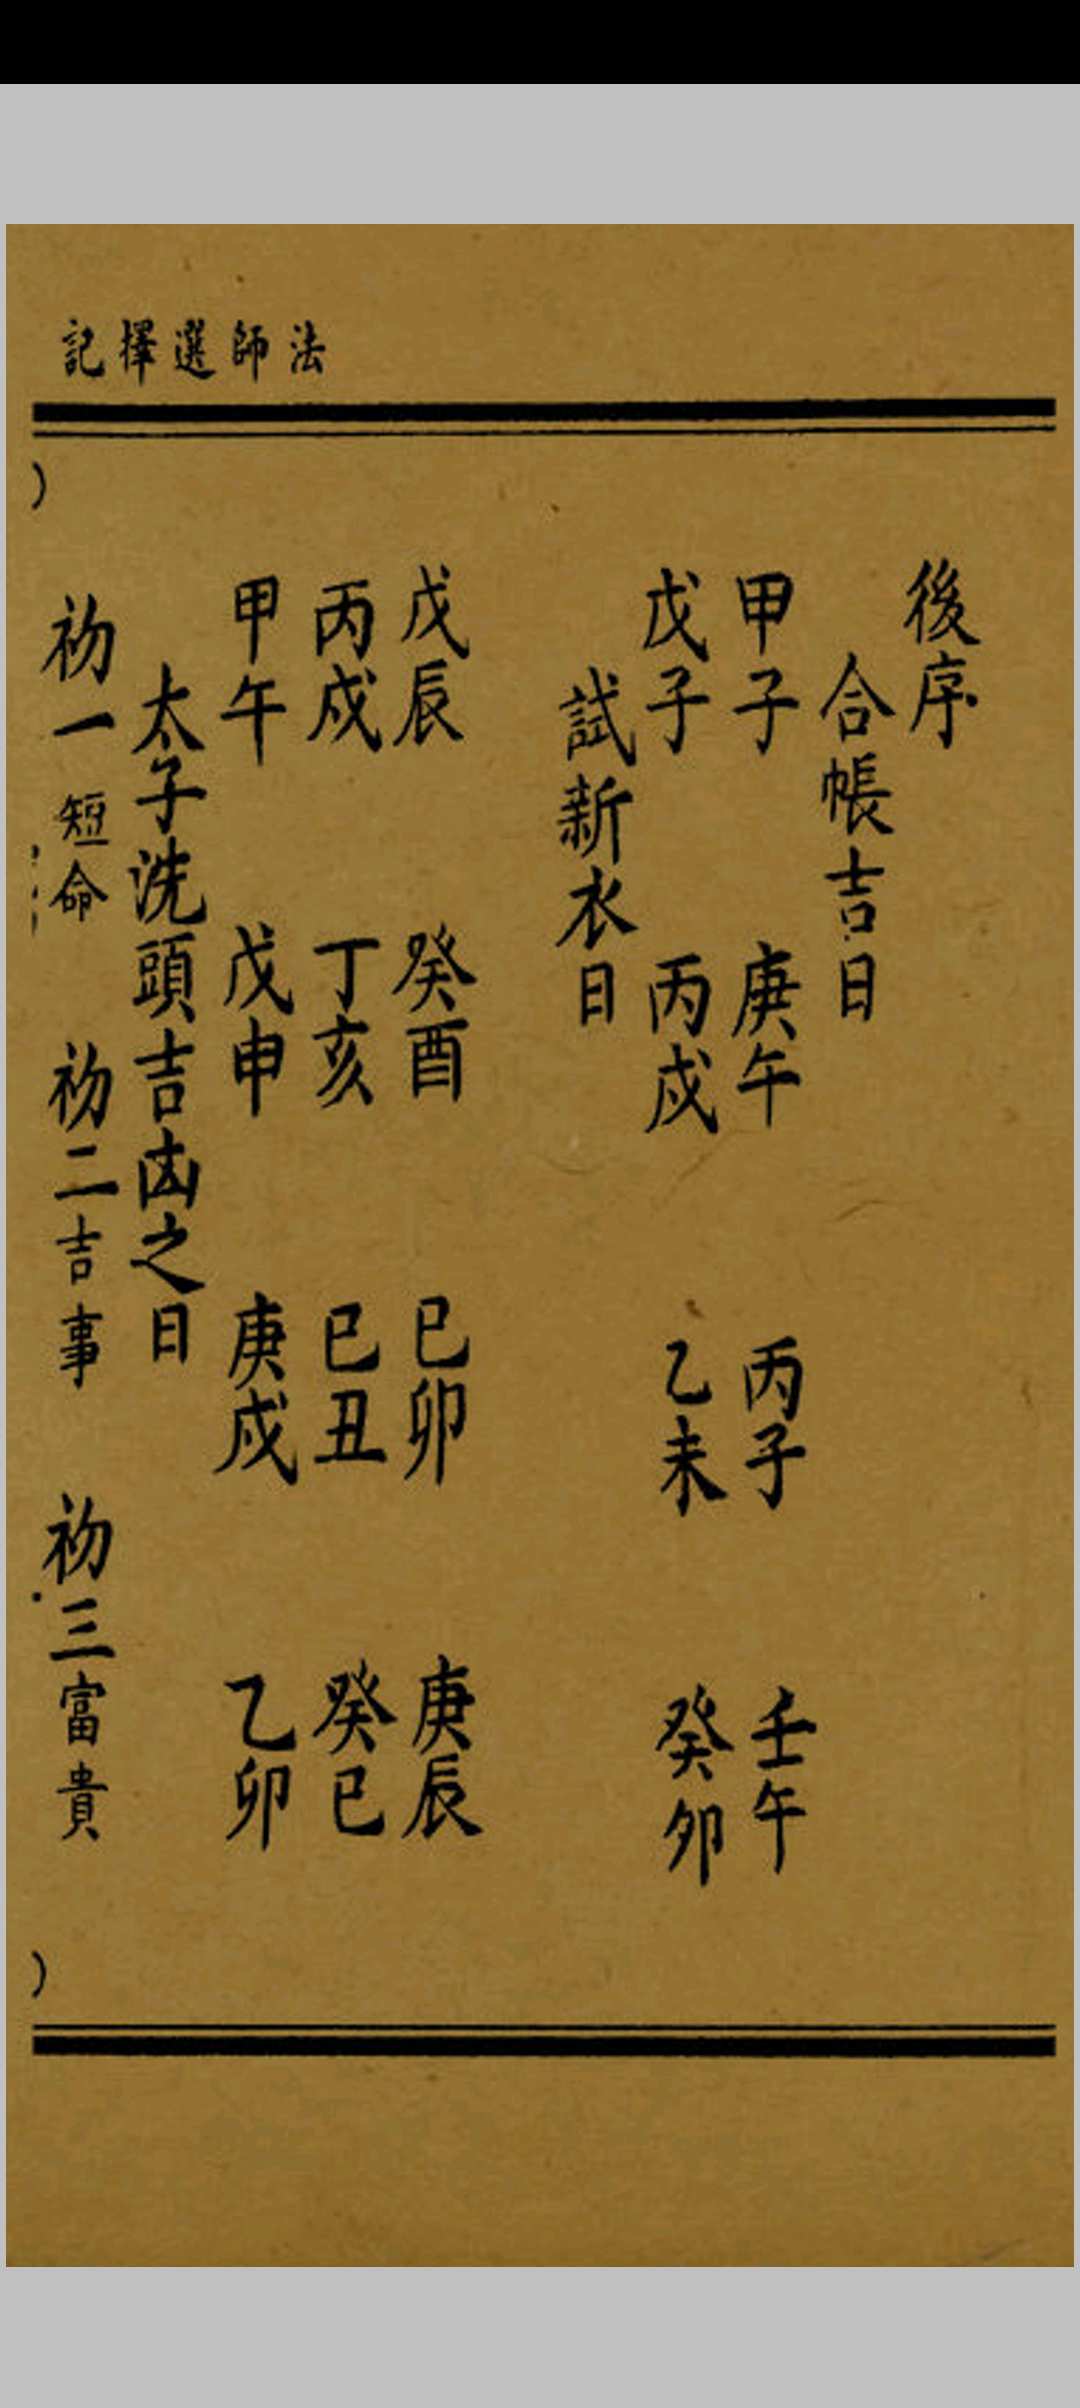 法師選擇記
後序
合帳吉日
甲子 庚午 丙子 壬午
戊子 丙戌 乙未 癸卯
試新衣日
戊辰 癸酉 巳卯 庚辰
丙戌 丁亥 巳丑 癸巳
甲午 戊申 庚戌 乙卯
太子洗頭吉凶之日
初一短命 初二吉事 初三富貴